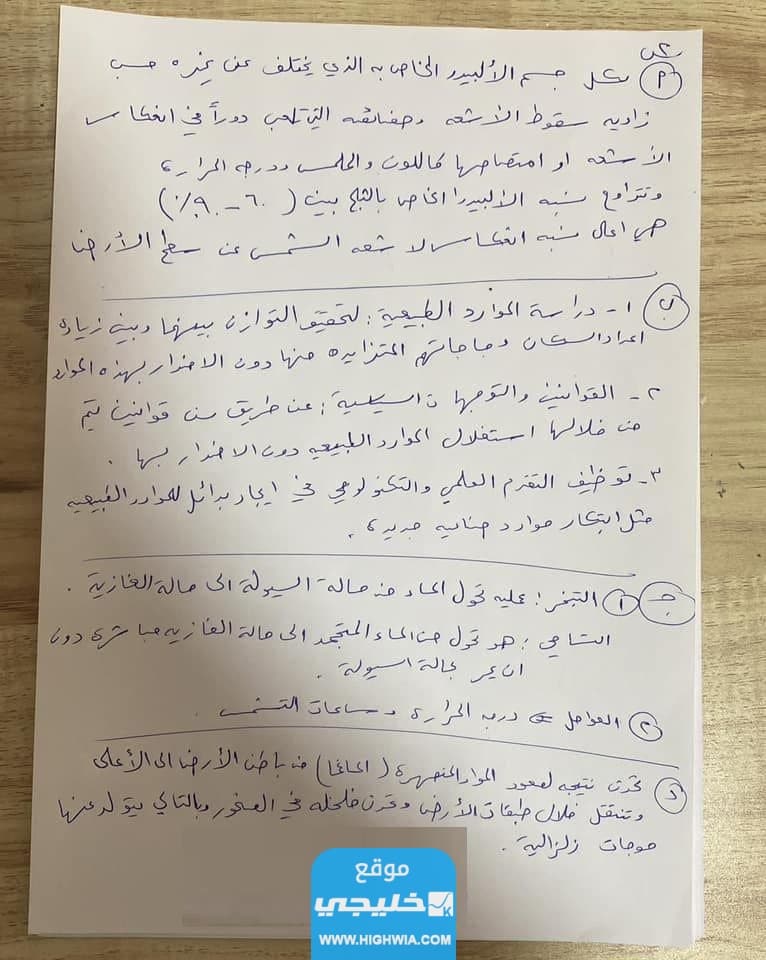 س٢
(أ) لكل جسم الألبيدو الخاص به الذي يختلف عن غيره حسب
زاويه سقوط الأشعه وصفائصه التي تلعب دوراً في انعكاس
الأشعه او امتصاصها كاللون والملمس ودرجه الحرارة
وتتراوح نسبه الألبيدو الخاص بالثلج بين (٦٠ - ٩٠٪)
هي اعلى نسبه انعكاس لاشعه الشمس عن سطح الأرض
(ب) ١- دراسة الموارد الطبيعية: لتحقيق التوازن بينها وبين زيادة
اعداد السكان وحاجاتهم المتزايده منها دون الاضرار بهذه الموارد
٢- القوانين والتوجهات السياسية: عن طريق سن قوانين يتم
من خلالها استغلال الموارد الطبيعيه دون الاضرار بها .
٣- توظيف التقدم العلمي والتكنولوجي في ايجاد بدائل للموارد الطبيعيه
مثل ابتكار موارد صناعيه جديدة .
(جـ) (١) التبخر: عمليه تحول الماء من حالة السيولة الى حالة الغازية .
التسامي: هو تحول من الماء المتجمد الى حالة الغازيه مباشرة دون
ان يمر بحالة السيولة .
(٢) العوامل ⇐ درجه الحرارة وساعات التشمس .
(د) تحدث نتيجه لصعود المواد المنصهرة (الماغما) من باطن الأرض الى الأعلى
وتنتقل خلال طبقات الأرض وتحدث خلخله في الصخور وبالتالي يتولد عنها
موجات زلزالية .
موقع
خليجي
WWW.HIGHWIA.COM